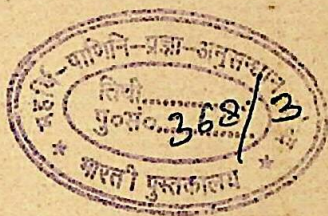 महर्षि-पाणिनि-प्रज्ञा-अनुसन्धान
तिथी..............
पु०सं०....368/3
* भारती पुस्तकालय *